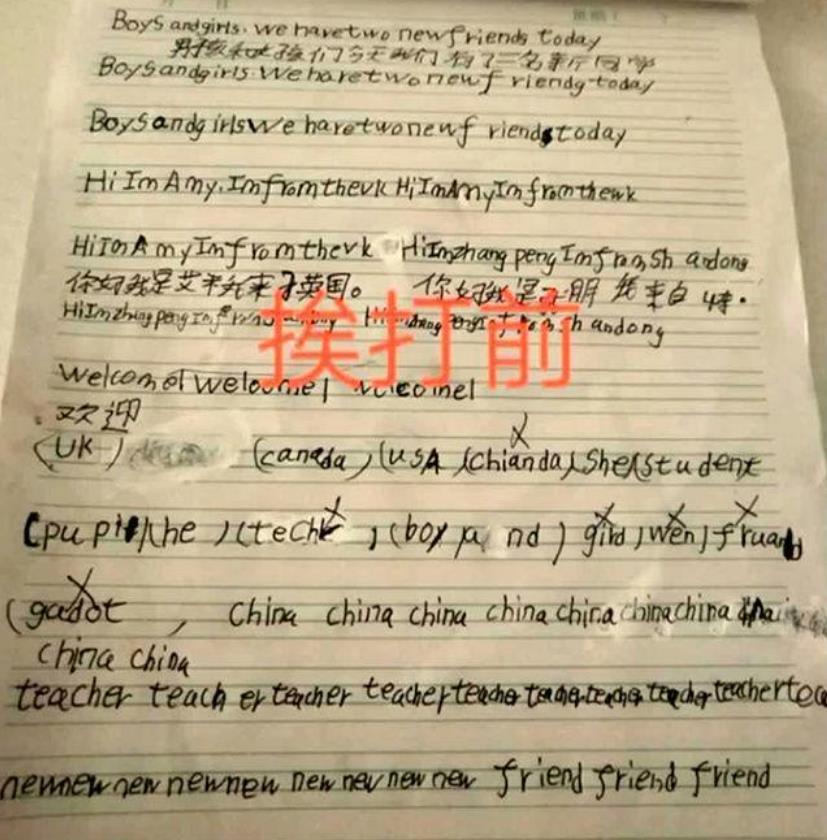 Boys andgirls. we havetwo newfriends today
男孩和女孩们今天我们有了二名新同学
Boysandgirls Wehavetwonewf riendgtoday
Boysandg irlswe havetwonewf riendstoday
Hi ImAmy.Imfromthevk HiImAmyImfromthewk
HiImAmyImfromthevk HiImzhangpengImfromsh andong
你好我是艾米我来于英国。 你好我是 朋 来自
挨打前
HiImzhangpengImf andong
welcome welcome welcome
欢迎
(UK) (canada)(USA (chianda) she(student
(pupil he )(teche ),(boy nd) gird)wen)fruand
(gadot , China china china china china china china
china china
teacher teach er teacher teacher teacher teacher teacher teacher teacher tea
new new new new new new new new new friend friend friend